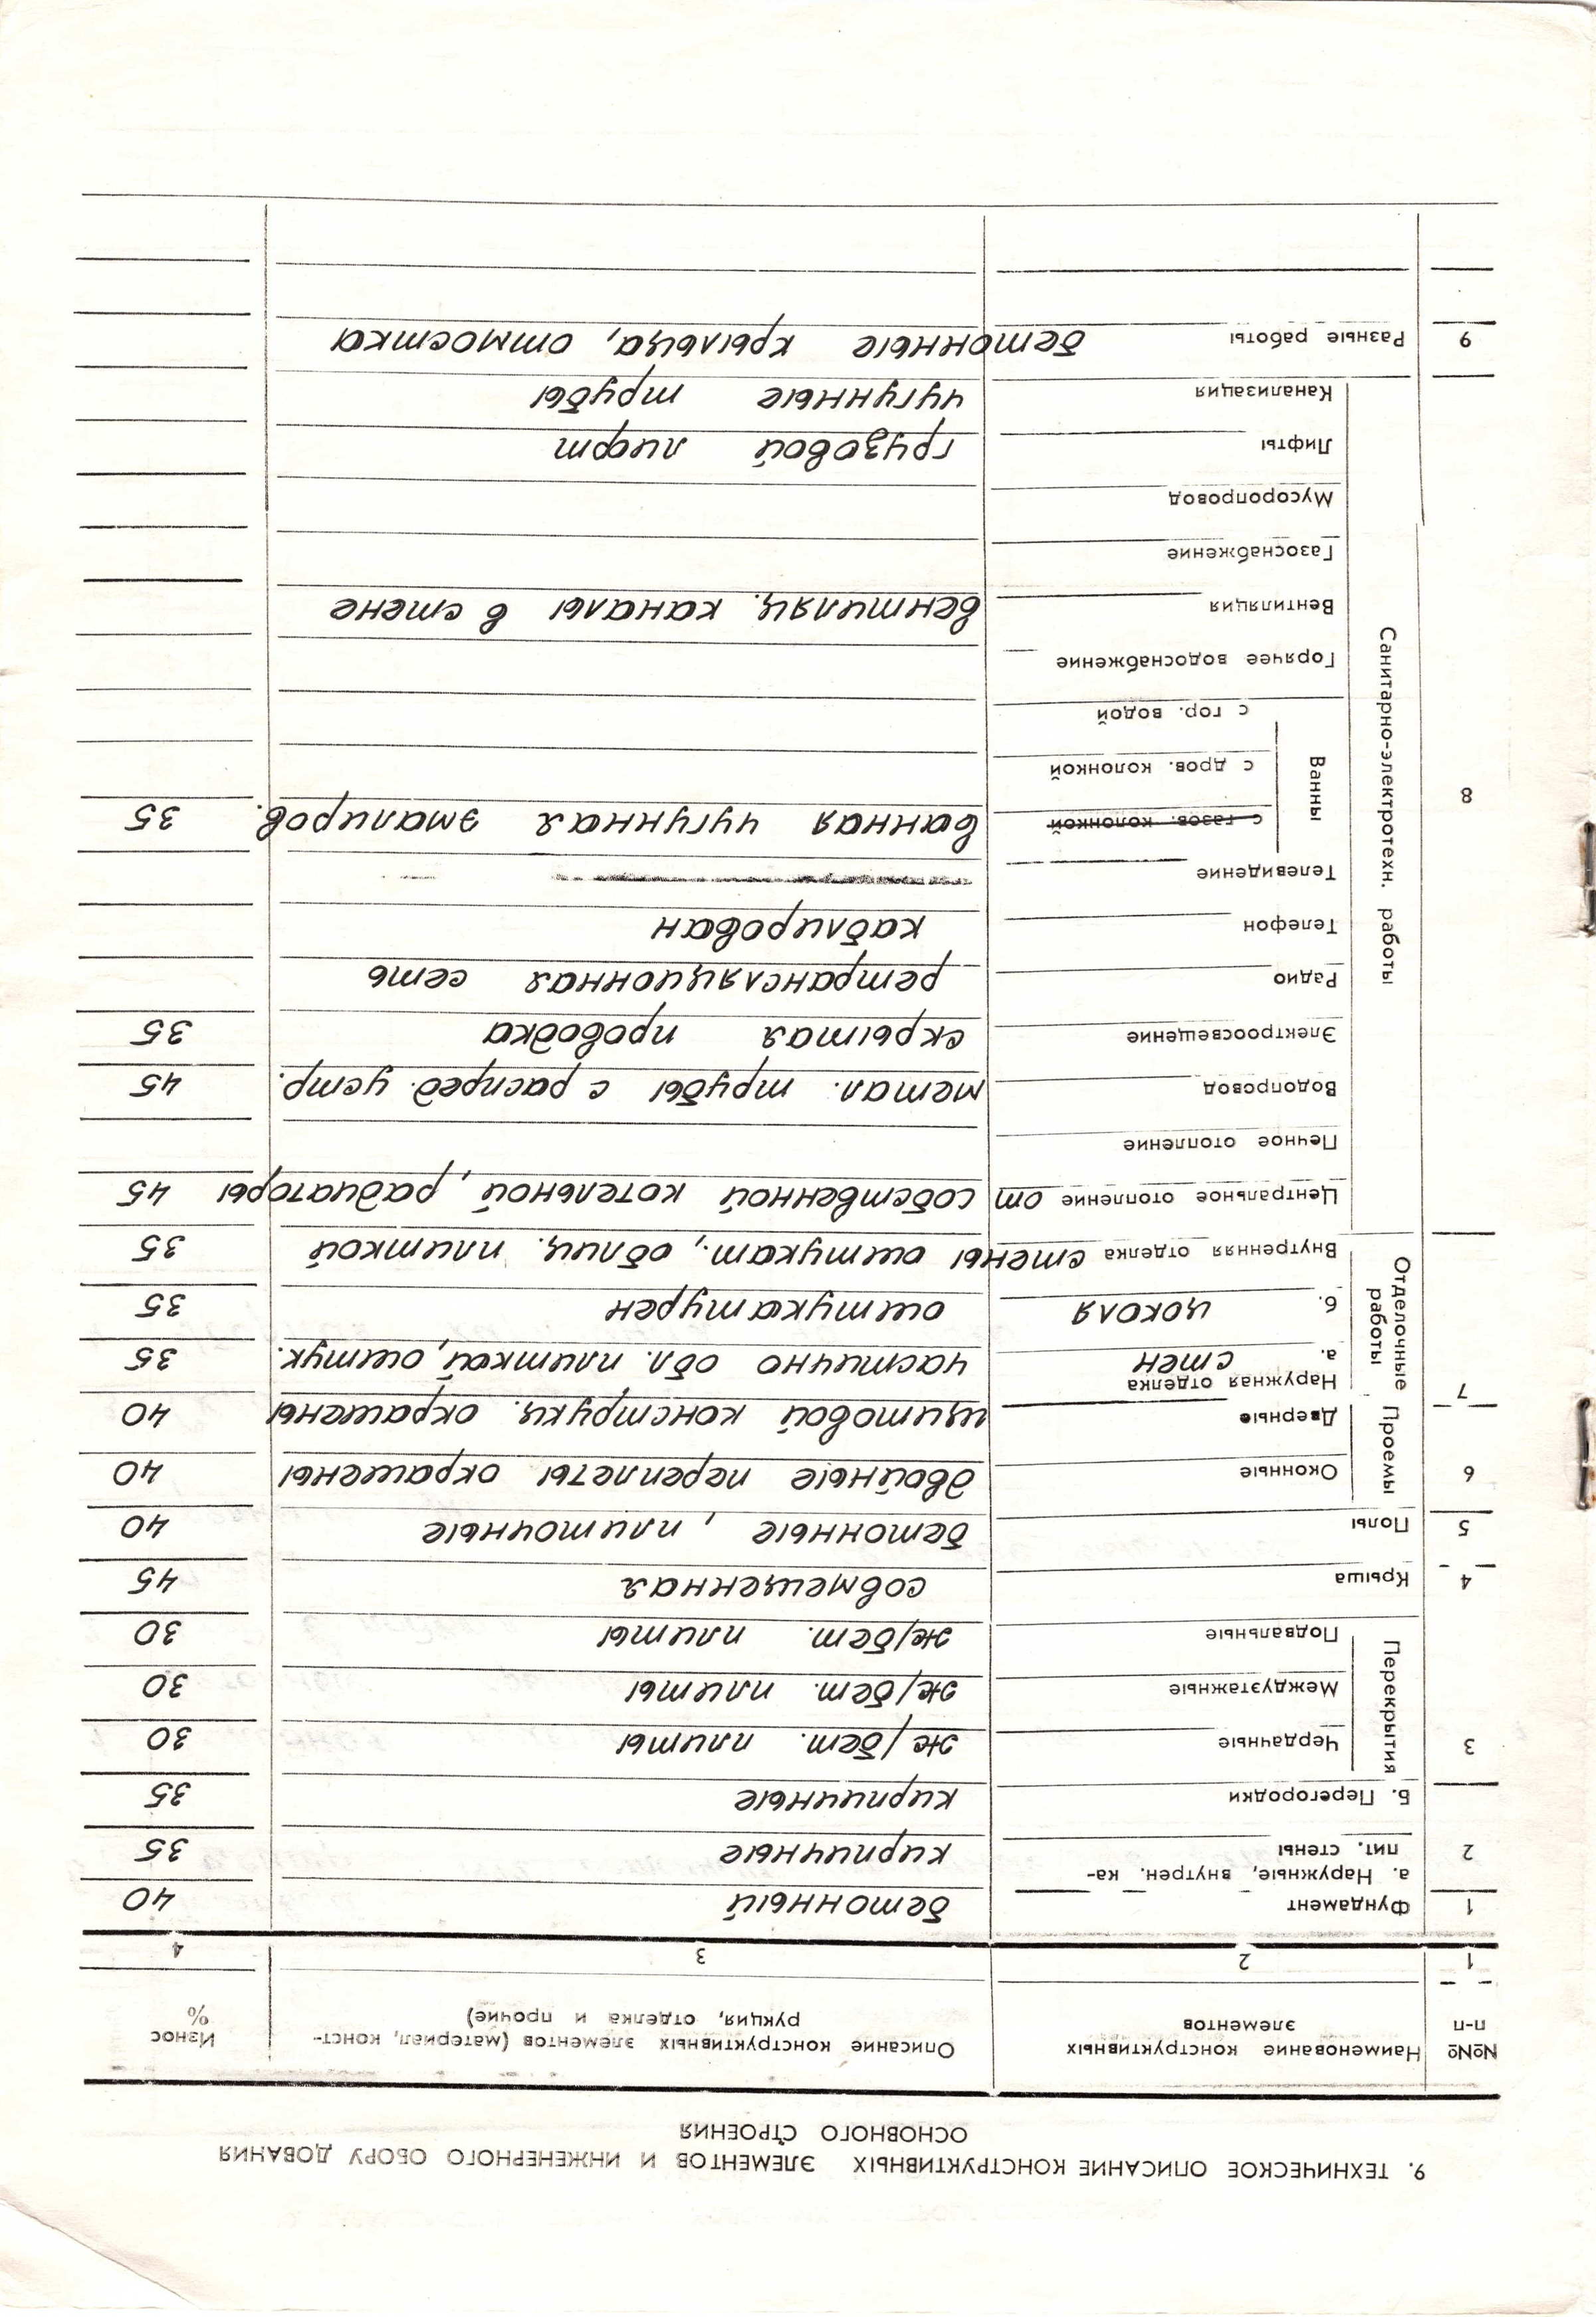 9. ТЕХНИЧЕСКОЕ ОПИСАНИЕ КОНСТРУКТИВНЫХ ЭЛЕМЕНТОВ И ИНЖЕНЕРНОГО ОБОРУ ДОВАНИЯ
ОСНОВНОГО СТРОЕНИЯ
№№ п-п Наименование конструктивных элементов Описание конструктивных элементов (материал, конст-рукция, отделка и прочие) Износ %
1 2 3 4
1 Фундамент бетонный 40
2 а. Наружные, внутрен. ка-
пит. стены кирпичные 35
Б. Перегородки кирпичные 35
3 Перекрытия Чердачные ж/бет. плиты 30
Междуэтажные ж/бет. плиты 30
Подвальные ж/бет. плиты 30
4 Крыша совмещенная 45
5 Полы бетонные, плиточные 40
6 Проемы Оконные двойные переплеты окрашены 40
Дверные щитовой конструкц. окрашены 40
7 Отделочные работы Наружная отделка
а. стен частично обл. плиткой, оштук. 35
б. цоколя оштукатурен 35
Внутренняя отделка стены оштукат., облиц. плиткой 35
8 Санитарно-электротехн. работы Центральное отопление от собственной котельной, радиаторы 45
Печное отопление
Водопровод метал. трубы с распред. устр. 45
Электроосвещение скрытая проводка 35
Радио ретрансляционная сеть
Телефон каблирован
Телевидение
Ванны с газов. колонкой ванная чугунная эмалиров. 35
с дров. колонкой
с гор. водой
Горячее водоснабжение
Вентиляция вентиляц. каналы в стене
Газоснабжение
Мусоропровод
Лифты грузовой лифт
Канализация чугунные трубы
9 Разные работы бетонные крыльца, отмостка